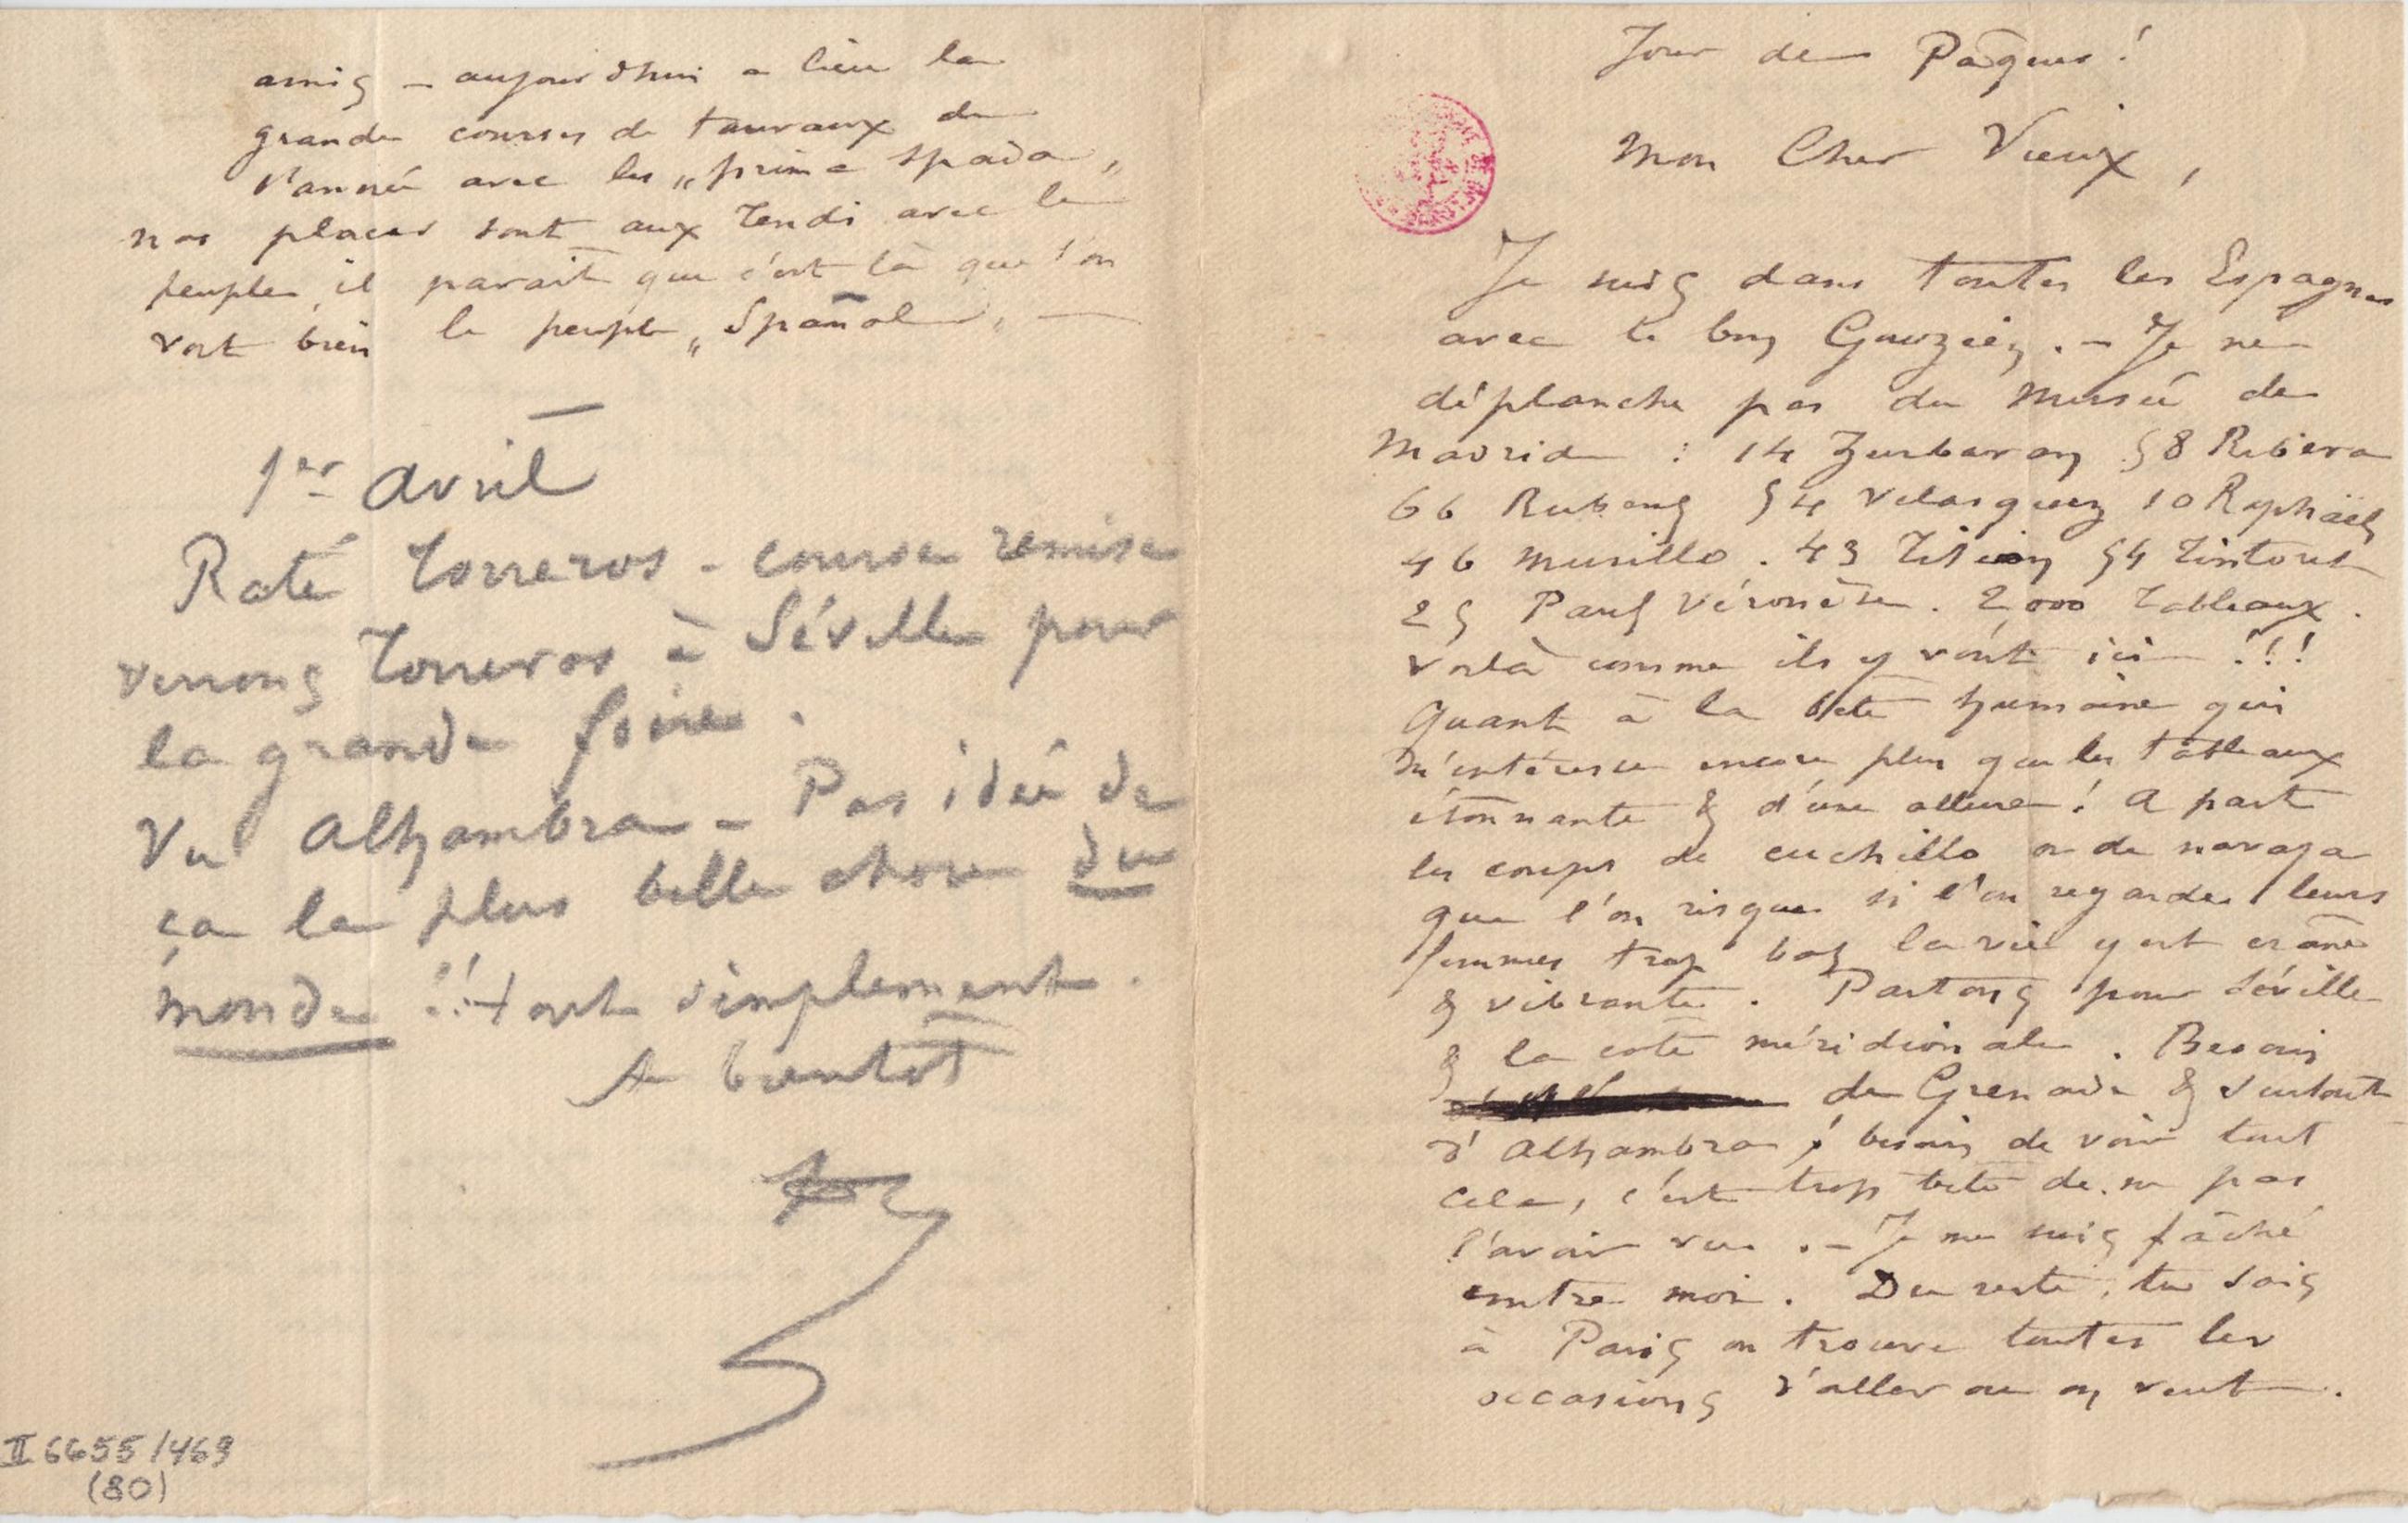 Jour de Pâques !
Mon Cher Vieux,
Je suis dans toutes les Espagnes
avec le bon Gouzien. - Je ne
déplanche pas du Musée de
Madrid : 14 Zurbaran 58 Ribiera
66 Rubens 54 Velasquez 10 Raphaël
46 Murillo. 43 Titien 54 Tintoret
25 Paul Véronèse. 2,000 Tableaux.
Voilà comme ils y vont ici !!!
Quant à la bête humaine qui
m'intéresse encore plus que les tableaux
étonnante & d'une allure ! A part
les coups de cuchillo ou de navaja
que l'on risque si l'on regarde leurs
femmes trop bas la vie y est crâne
& vibrante. Partons pour Séville
& la côte méridionale. Besoin
de Grenade & surtout
d'Alhambra ! besoin de voir tout
cela, c'est trop bête de ne pas
l'avoir vu. - Je me suis fâché
contre moi. Du reste, tu sais
à Paris on trouve toutes les
occasions d'aller ou on veut.
amis - aujourd'hui a lieu la
grande courses de tauraux de
l'année avec les „prima spada„
nos places sont aux Tendi avec le
peuple, il parait que c'est là que l'on
voit bien le peuple „Español„ —
1er Avril
Raté Torreros - course remise
verrons Torreros à Séville pour
la grande foire.
Vu Alhambra - Pas idée de
ça la plus belle chose du
monde !! tout simplement.
A bientôt
II 6655/469
(80)